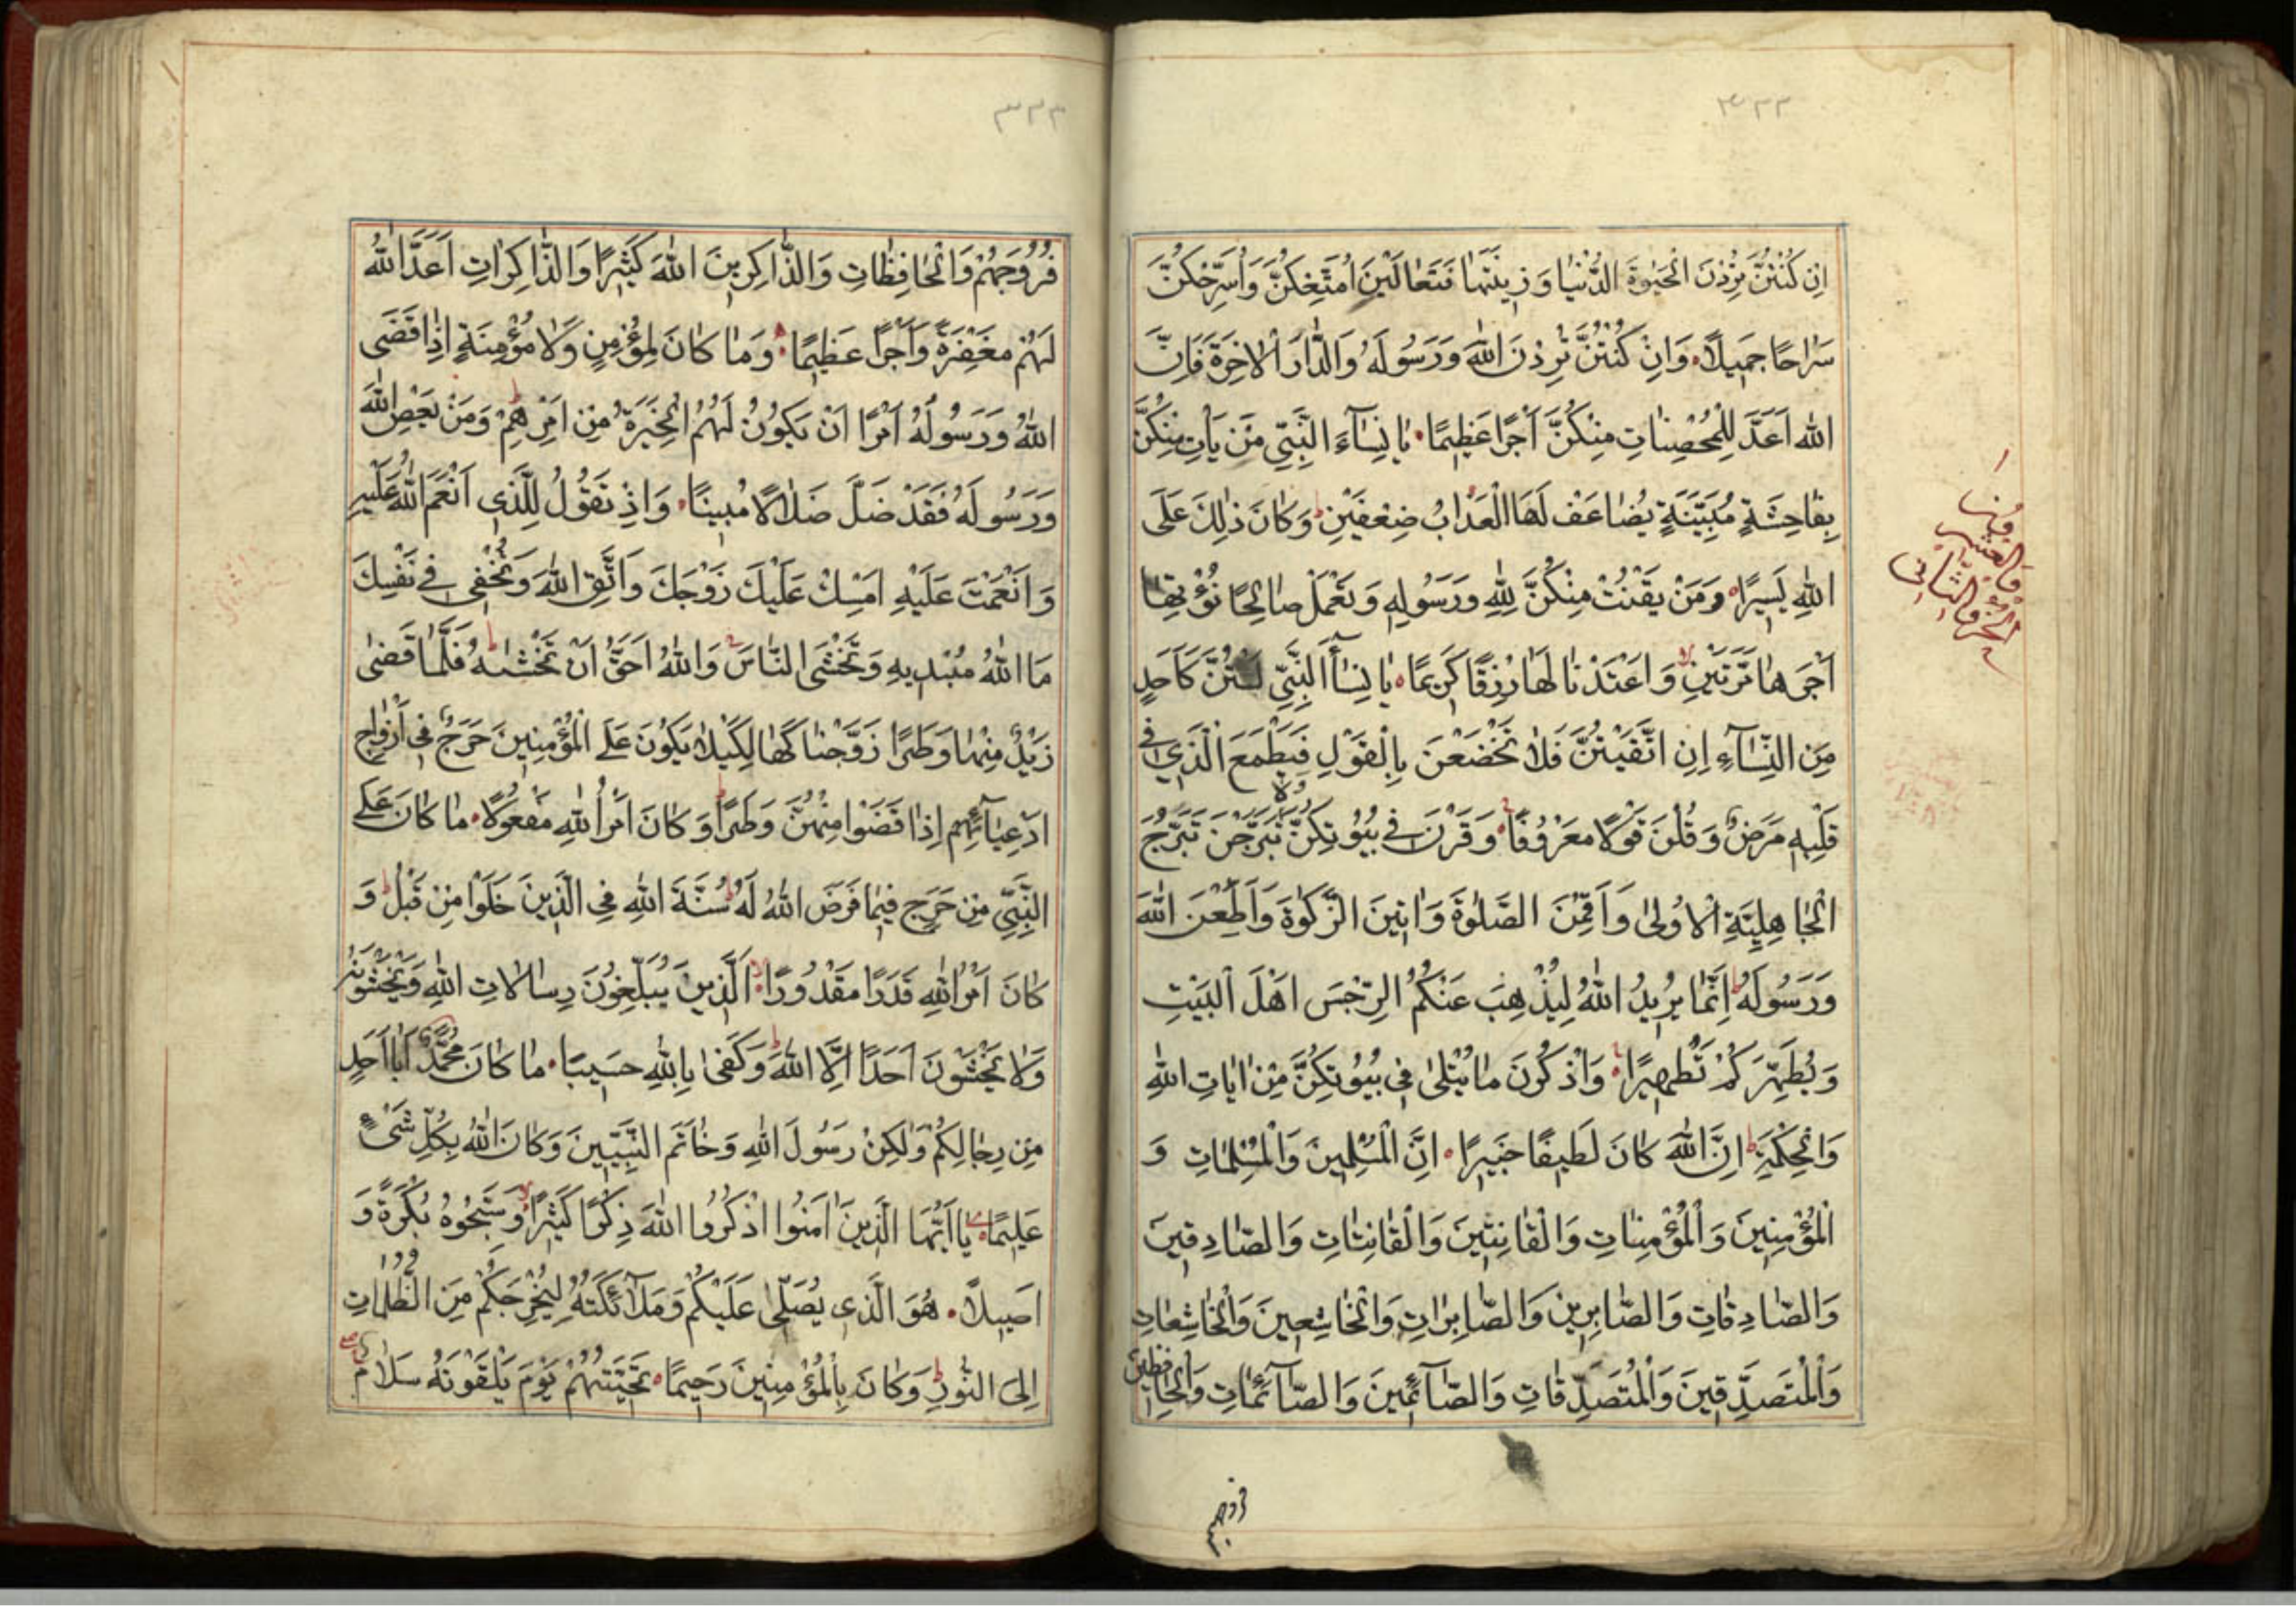 ٣٢٢
اِنْ كُنْتُنَّ تُرِدْنَ الْحَيٰوةَ الدُّنْيٰا وَزِينَتَهٰا فَتَعٰالَيْنَ اُمَتِّعْكُنَّ وَاُسَرِّحْكُنَّ
سَرٰاحًا جَمِيلًا وَاِنْ كُنْتُنَّ تُرِدْنَ اللّٰهَ وَرَسُولَهُ وَالدّٰارَ الْاٰخِرَةَ فَاِنَّ
اللّٰهَ اَعَدَّ لِلْمُحْصِنٰاتِ مِنْكُنَّ اَجْرًا عَظِيمًا يٰا نِسٰآءَ النَّبِيِّ مَنْ يَاْتِ مِنْكُنَّ
بِفٰاحِشَةٍ مُبَيِّنَةٍ يُضٰاعَفْ لَهَا الْعَذٰابُ ضِعْفَيْنِ وَكٰانَ ذٰلِكَ عَلَى
اللّٰهِ يَسِيرًا وَمَنْ يَقْنُتْ مِنْكُنَّ لِلّٰهِ وَرَسُولِهِ وَتَعْمَلْ صٰالِحًا نُؤْتِهٰا
اَجْرَهٰا مَرَّتَيْنِ وَاَعْتَدْنٰا لَهٰا رِزْقًا كَرِيمًا يٰا نِسٰآءَ النَّبِيِّ لَسْتُنَّ كَاَحَدٍ
مِنَ النِّسٰآءِ اِنِ اتَّقَيْتُنَّ فَلٰا تَخْضَعْنَ بِالْقَوْلِ فَيَطْمَعَ الَّذِي فِي
قَلْبِهِ مَرَضٌ وَقُلْنَ قَوْلًا مَعْرُوفًا وَقَرْنَ فِي بُيُوتِكُنَّ وَلٰا تَبَرَّجْنَ تَبَرُّجَ
الْجٰاهِلِيَّةِ الْاُولىٰ وَاَقِمْنَ الصَّلٰوةَ وَاٰتِينَ الزَّكٰوةَ وَاَطِعْنَ اللّٰهَ
وَرَسُولَهُ اِنَّمٰا يُرِيدُ اللّٰهُ لِيُذْهِبَ عَنْكُمُ الرِّجْسَ اَهْلَ الْبَيْتِ
وَيُطَهِّرَكُمْ تَطْهِيرًا وَاذْكُرْنَ مٰا يُتْلىٰ فِي بُيُوتِكُنَّ مِنْ اٰيٰاتِ اللّٰهِ
وَالْحِكْمَةِ اِنَّ اللّٰهَ كٰانَ لَطِيفًا خَبِيرًا اِنَّ الْمُسْلِمِينَ وَالْمُسْلِمٰاتِ وَ
الْمُؤْمِنِينَ وَالْمُؤْمِنٰاتِ وَالْقٰانِتِينَ وَالْقٰانِتٰاتِ وَالصّٰادِقِينَ
وَالصّٰادِقٰاتِ وَالصّٰابِرِينَ وَالصّٰابِرٰاتِ وَالْخٰاشِعِينَ وَالْخٰاشِعٰاتِ
وَالْمُتَصَدِّقِينَ وَالْمُتَصَدِّقٰاتِ وَالصّٰآئِمِينَ وَالصّٰآئِمٰاتِ وَالْحٰافِظِينَ
فروجهم
٣٢٣
فُرُوجَهُمْ وَالْحٰافِظٰاتِ وَالذّٰاكِرِينَ اللّٰهَ كَثِيرًا وَالذّٰاكِرٰاتِ اَعَدَّ اللّٰهُ
لَهُمْ مَغْفِرَةً وَاَجْرًا عَظِيمًا وَمٰا كٰانَ لِمُؤْمِنٍ وَلٰا مُؤْمِنَةٍ اِذٰا قَضَى
اللّٰهُ وَرَسُولُهُ اَمْرًا اَنْ يَكُونَ لَهُمُ الْخِيَرَةُ مِنْ اَمْرِهِمْ وَمَنْ يَعْصِ اللّٰهَ
وَرَسُولَهُ فَقَدْ ضَلَّ ضَلٰالًا مُبِينًا وَاِذْ تَقُولُ لِلَّذِي اَنْعَمَ اللّٰهُ عَلَيْهِ
وَاَنْعَمْتَ عَلَيْهِ اَمْسِكْ عَلَيْكَ زَوْجَكَ وَاتَّقِ اللّٰهَ وَتُخْفِي فِي نَفْسِكَ
مَا اللّٰهُ مُبْدِيهِ وَتَخْشَى النّٰاسَ وَاللّٰهُ اَحَقُّ اَنْ تَخْشٰيهُ فَلَمّٰا قَضىٰ
زَيْدٌ مِنْهٰا وَطَرًا زَوَّجْنٰاكَهٰا لِكَيْلٰا يَكُونَ عَلَى الْمُؤْمِنِينَ حَرَجٌ فِي اَزْوٰاجِ
اَدْعِيٰآئِهِمْ اِذٰا قَضَوْا مِنْهُنَّ وَطَرًا وَكٰانَ اَمْرُ اللّٰهِ مَفْعُولًا مٰا كٰانَ عَلَى
النَّبِيِّ مِنْ حَرَجٍ فِيمٰا فَرَضَ اللّٰهُ لَهُ سُنَّةَ اللّٰهِ فِي الَّذِينَ خَلَوْا مِنْ قَبْلُ وَ
كٰانَ اَمْرُ اللّٰهِ قَدَرًا مَقْدُورًا اَلَّذِينَ يُبَلِّغُونَ رِسٰالٰاتِ اللّٰهِ وَيَخْشَوْنَهُ
وَلٰا يَخْشَوْنَ اَحَدًا اِلَّا اللّٰهَ وَكَفىٰ بِاللّٰهِ حَسِيبًا مٰا كٰانَ مُحَمَّدٌ اَبٰا اَحَدٍ
مِنْ رِجٰالِكُمْ وَلٰكِنْ رَسُولَ اللّٰهِ وَخٰاتَمَ النَّبِيِّينَ وَكٰانَ اللّٰهُ بِكُلِّ شَيْءٍ
عَلِيمًا يٰا اَيُّهَا الَّذِينَ اٰمَنُوا اذْكُرُوا اللّٰهَ ذِكْرًا كَثِيرًا وَسَبِّحُوهُ بُكْرَةً وَ
اَصِيلًا هُوَ الَّذِي يُصَلِّي عَلَيْكُمْ وَمَلٰآئِكَتُهُ لِيُخْرِجَكُمْ مِنَ الظُّلُمٰاتِ
اِلَى النُّورِ وَكٰانَ بِالْمُؤْمِنِينَ رَحِيمًا تَحِيَّتُهُمْ يَوْمَ يَلْقَوْنَهُ سَلٰامٌ